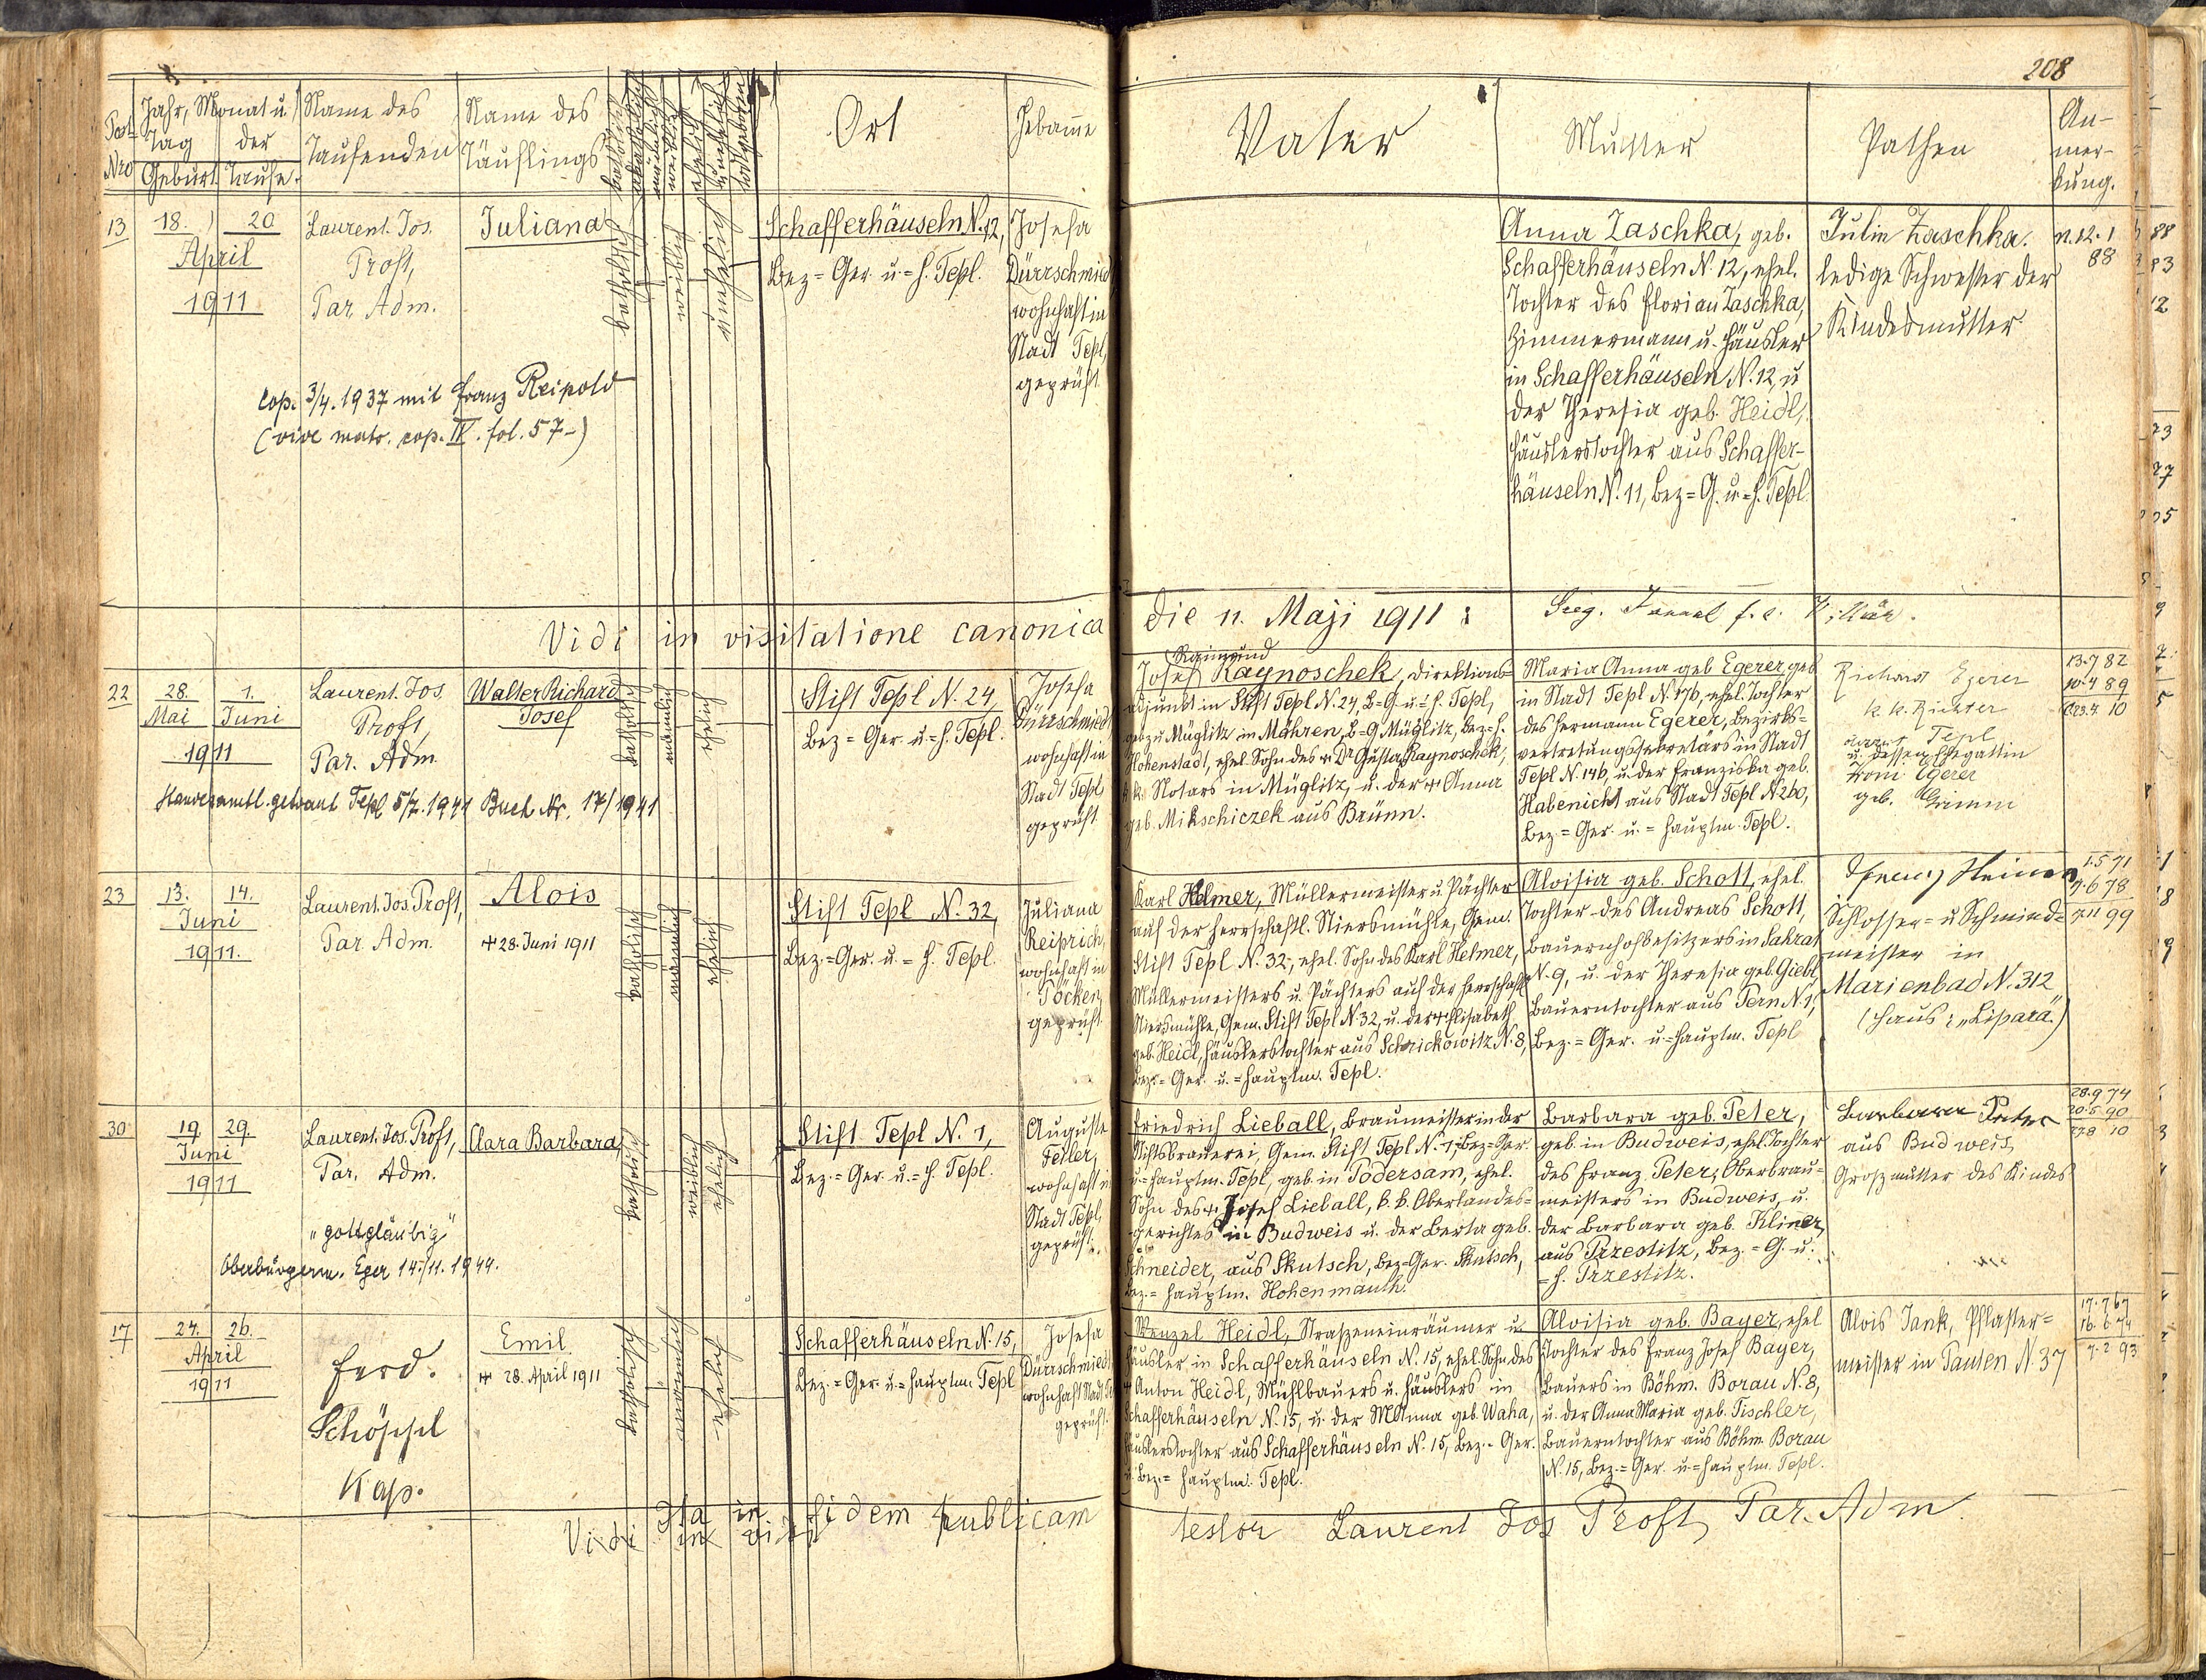 208
Post-Nro
Jahr, Monat u. Tag der
Geburt
Taufe.
Name des Taufenden
Name des Täuflings
katholisch
akatholisch
männlich
weiblich
ehelich
unehelich
todtgeboren
Ort
Hebamme
Vater
Mutter
Pathen
An-
mer-
kung.
13
18. 20
April
1911
Laurent. Jos.
Proft,
Par. Adm.
Juliana
katholisch
weiblich
unehelich
Schafferhäuseln N. 12,
Bez.=Ger. u.=H. Tepl.
Josefa
Dürrschmied,
wohnhaft in
Stadt Tepl,
geprüft.
Cop. 3/4. 1937 mit Franz Reipold
(vide matr. cop. IV. fol. 57-)
Anna Zaschka, geb.
Schafferhäuseln N. 12, ehel.
Tochter des Florian Zaschka,
Zimmermann u. Häusler
in Schafferhäuseln N. 12, u
der Theresia geb. Heidl,
Häuslerstochter aus Schaffer-
häuseln N. 11, Bez=G. u=H. Tepl
Julie Zaschka.
ledige Schwester der
Kindesmutter.
12. 1
88
Vidi in visitatione canonica die 11. Maji 1911:
22
28. 1.
Mai Juni
1911
Laurent. Jos.
Proft,
Par. Adm.
Walter Richard
Josef
katholisch
männlich
ehelich
Stift Tepl N. 24,
Bez=Ger. u.=H. Tepl.
Josefa
Dürrschmied,
wohnhaft in
Stadt Tepl
geprüft.
Standesamtl. getraut Tepl 5/7. 1941 Buch Nr. 17/1941
Raimund
Josef Raynoschek, Direktions-
adjunkt in Stift Tepl N. 24, B=G. u.=H. Tepl,
geb. zu Müglitz in Mähren, B=G Müglitz, Bez=H.
Hohenstadt, ehel. Sohn des + Dr. Gustav Raynoschek,
k.k. Notars in Müglitz, u. der + Anna
geb. Mikschiczek aus Brünn.
Maria Anna geb. Egerer, geb
in Stadt Tepl N. 176, ehel. Tochter
des Hermann Egerer, Bezirks-
vertretungssekretärs in Stadt
Tepl N. 146, u. der Franziska geb.
Habenicht aus Stadt Tepl N 260,
Bez.=Ger. u.=Hauptm. Tepl.
Richard Egerer
k. k. Richter
Tepl
u. dessen Ehegattin
Egerer
geb. Grimm
13.7 82
10.4 89
23.7. 10
23
13. 14.
Juni
1911.
Laurent. Jos. Proft,
Par. Adm.
Alois
+ 28. Juni 1911
katholisch
männlich
ehelich
Stift Tepl N. 32,
Bez.=Ger. u.=H. Tepl.
Juliana
Reiprich,
wohnhaft in
Töcken,
geprüft
Karl Helmer, Müllermeister u. Pächter
auf der herrschaftl. Niersmühle, Gem.
Stift Tepl N. 32, ehel. Sohn des Karl Helmer,
Müllermeisters u. Pächters auf der herrschaftl.
Niersmühle, Gem. Stift Tepl N 32, u. der + Elisabeth
geb. Heidl, Häuslerstochter aus Schrickowitz N. 8,
Bez.=Ger. u.=Hauptm. Tepl.
Aloisia geb. Schott, ehel.
Tochter des Andreas Schott,
Bauernhofbesitzers in Sahrat
N. 9, u. der Theresia geb. Giebl,
Bauerntochter aus Pern N. 1,
Bez.=Ger. u.=Hauptm. Tepl
Schlosser= u Schmied=
meister in
Marienbad N. 312
(Haus: „Lipara“.)
1.5 71
7.6 78
7.11 99
30
19 29.
Juni
1911
Laurent. Jos. Proft,
Par. Adm.
Clara Barbara
katholisch
weiblich
ehelich
Stift Tepl N. 1,
Bez.=Ger. u.=H. Tepl.
Auguste
Fedler,
wohnhaft in
Stadt Tepl,
geprüft.
„gottgläubig“
Oberbürgerm. Eger 14./11. 1944.
Friedrich Lieball, Braumeister in der
Stiftsbrauerei, Gem. Stift Tepl N. 1, Bez=Ger.
u=Hauptm. Tepl, geb. in Podersam, ehel.
Sohn des + Josef Lieball, k. k. Oberlandes=
gerichtes in Budweis u. der Berta geb.
Schneider, aus Skutsch, Bez=Ger. Skutsch,
Bez.=Hauptm. Hohenmauth.
Barbara geb. Peter,
geb. in Budweis, ehel. Tochter
des Franz Peter, Oberbrau=
meisters in Budweis, u.
der Barbara geb. Kliner,
aus Przestitz, Bez.=G. u.
=H. Przestitz.
Barbara Peter
aus Budweis,
Großmutter des Kindes
28.9 74
20.5 90
27.8 10
17
24. 26.
April
1911
Ferd.
Schöppl
Kap.
Emil
+ 28. April 1911
katholisch
männlich
ehelich
Schafferhäuseln N. 15,
Bez.=Ger. u.=Hauptm. Tepl
Josefa
Dürrschmied
wohnhaft Stadt Tepl
geprüft.
Wenzel Heidl, Straßeneinräumer u.
Häusler in Schafferhäuseln N. 15, ehel. Sohn des
+ Anton Heidl, Mühlbauers u. Häuslers in
Schafferhäuseln N. 15, u. der M. Anna geb. Waha,
Häuslerstochter aus Schafferhäuseln N. 15, Bez.-Ger.
u. Bez.=Hauptm. Tepl.
Aloisia geb. Bayer, ehel
Tochter des Franz Josef Bayer,
Bauers in Böhm. Borau N. 8,
u. der Anna Maria geb. Tischler,
Bauerntochter aus Böhm. Borau
N. 15, Bez.=Ger. u.=Hauptm. Tepl.
Alois Jank, Pflaster=
meister in Pausen N. 37
17.7 67
16.6 74
7.2 93
Ita in fidem publicam testor Laurent Jos Proft, Par. Adm.
Vidi in visi